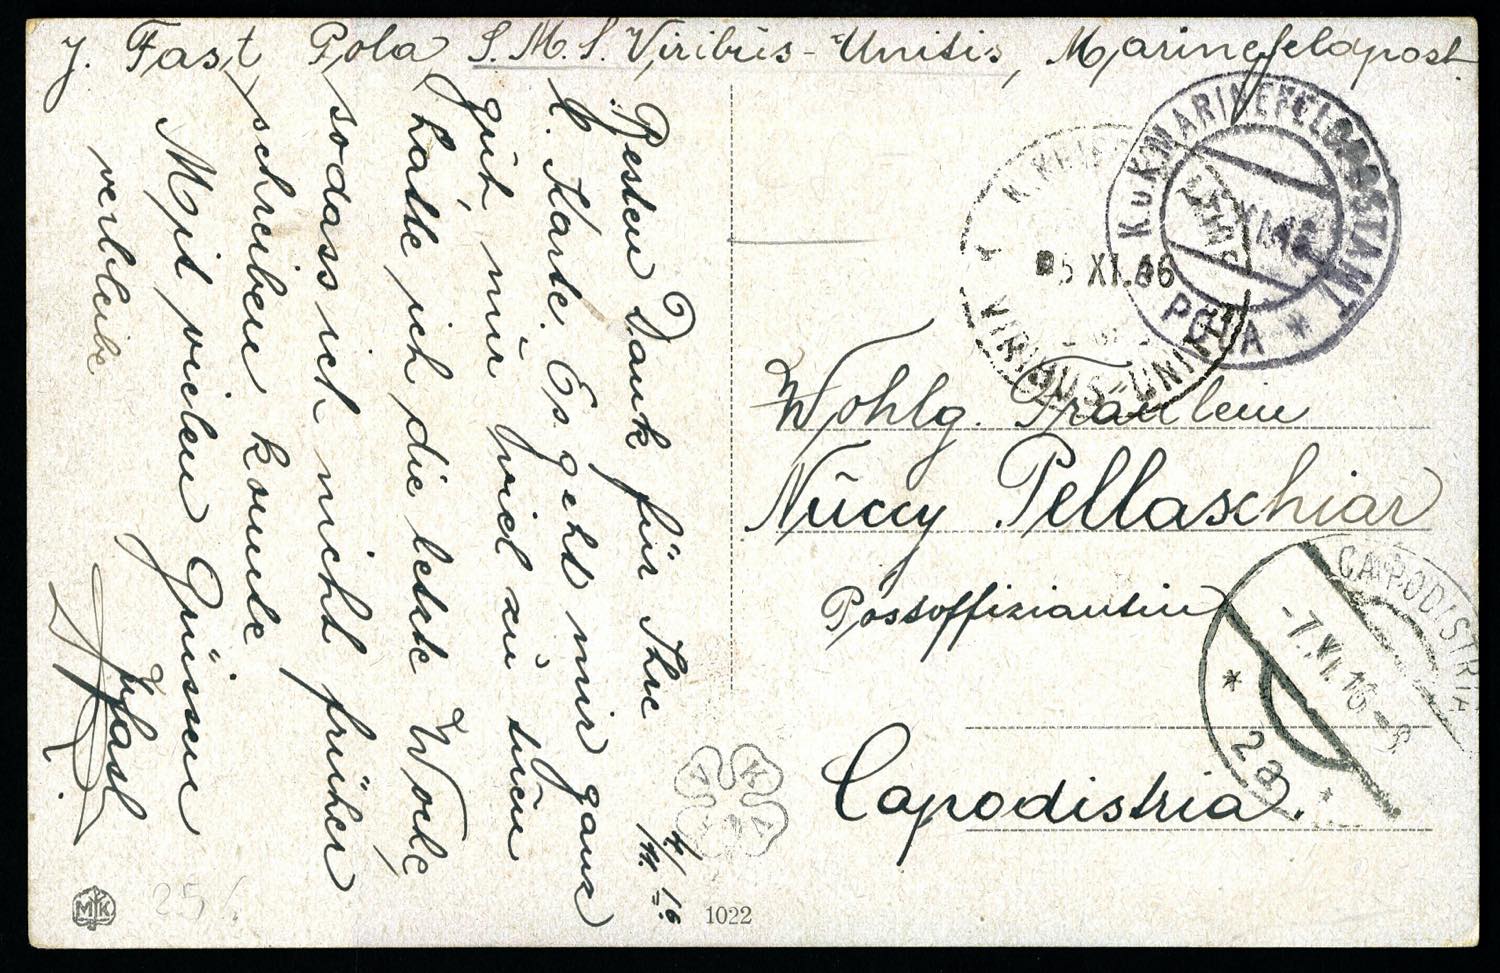 J. Fast, Pola, S.M.S. Viribus-Unitis, Marinefeldpost.
Besten Dank für Ihre
l. Karte. Es geht mir ganz
gut, nur viel zu tuen
hatte ich die letzte Woche,
sodass ich nicht früher
schreiben konnte
Mit vielen Grüssen
verbleibe
JFast
4/11. 16.
K.u.K. MARINEFELDPOSTAMT
POLA *
5 XI.16
VIRIBUS-UNITIS
Wohlg. Fräulein
Nuccy Pellaschiar
Postoffiziantin
Capodistria.
CAPODISTRIA
-7.XI.16-
* 2a *
MK
25/.
1022